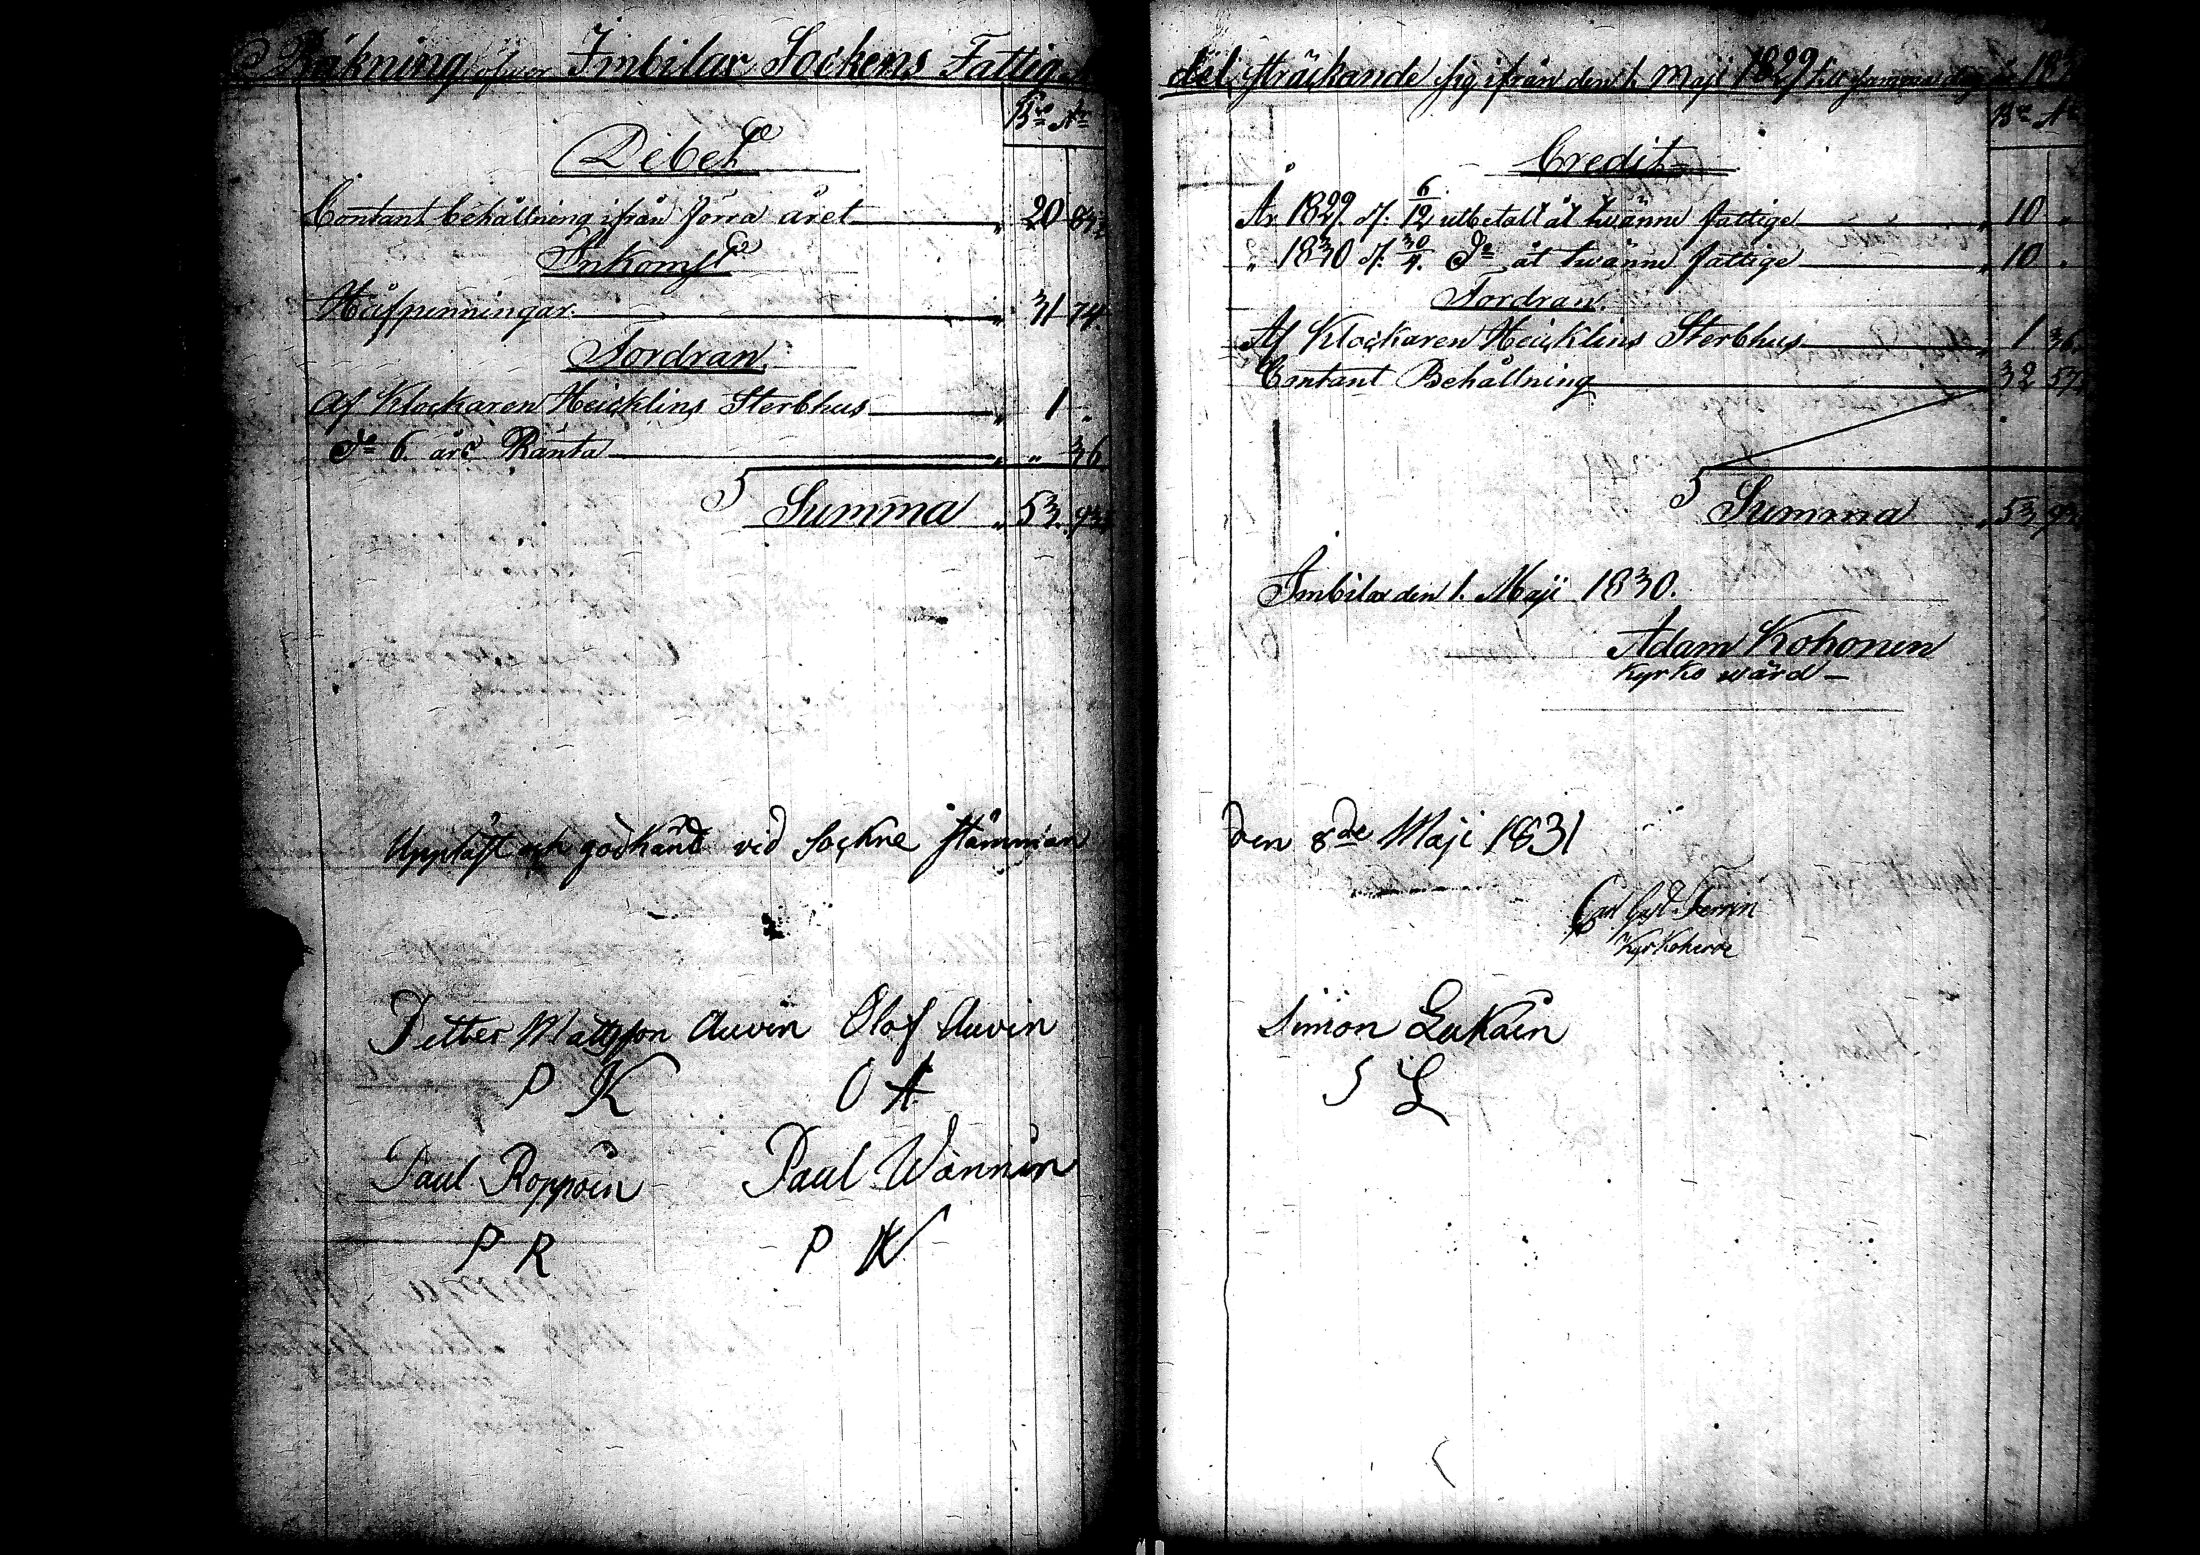 Räkning öfwer Imbilax Sockens Fattig
Bo Rbl Kop
Debet
Contant behållning ifrån förra året " 20 84½
Inkomst
Håfpenningar " 31 74
Fordran
Af Klockaren Heicklins Sterbhus " 1 "
do 6 års Ränta " " 36
Summa " 53 93
Uppläst och godkänd vid Sockne stämman
Petter Mattsson Auvin Olof Auvin
P K O A
Paul Roppoin Paul Wännin
P R P W
del, sträckande sig ifrån den 1. Maji 1829 till samma dag år 183
Credit
År 1829 d. 6/12 utbetalt åt twänne fattige " 10 "
" 1830 d. 30/4. do åt twänne fattige " 10 "
Fordran
Af Klockaren Heicklins Sterbhus " 1 36
Contant Behållning 32 57
Summa " 53 93
Imbilax den 1. Maji 1830.
Adam Kohonen
Kyrko wärd
den 8de Maji 1831
Kyrkoherde
Simon Lukain
S L